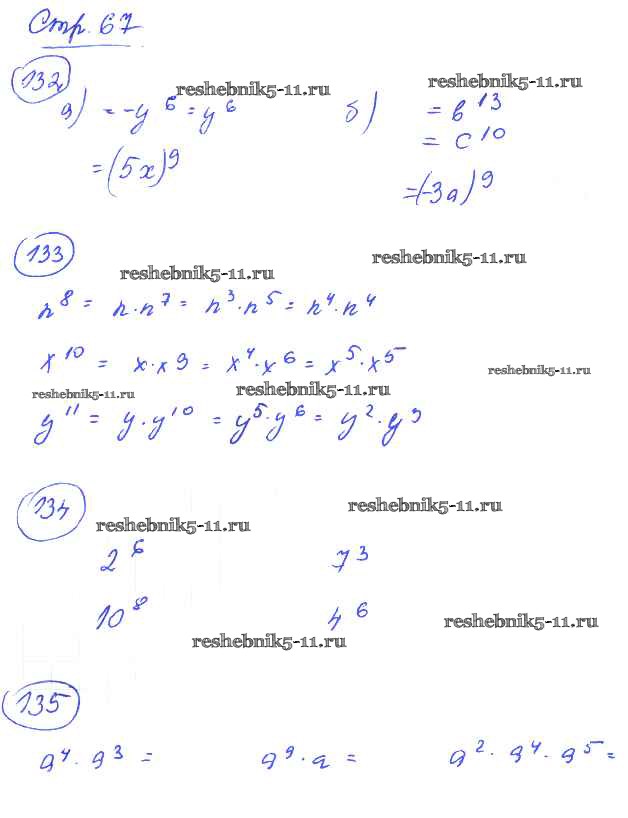 Стр. 67
132
reshebnik5-11.ru reshebnik5-11.ru
а) = -y⁶ = y⁶ б) = b¹³
= c¹⁰
= (5x)⁹ = (-3a)⁹
133
reshebnik5-11.ru reshebnik5-11.ru
n⁸ = n·n⁷ = n³·n⁵ = n⁴·n⁴
x¹⁰ = x·x9 = x⁴·x⁶ = x⁵·x⁵ reshebnik5-11.ru
reshebnik5-11.ru reshebnik5-11.ru
y¹¹ = y·y¹⁰ = y⁵·y⁶ = y²·y⁹
134
reshebnik5-11.ru reshebnik5-11.ru
2⁶ 7³
10⁸ 4⁶ reshebnik5-11.ru
reshebnik5-11.ru
135
a⁴·a³ = a⁹·a = a²·a⁴·a⁵ =